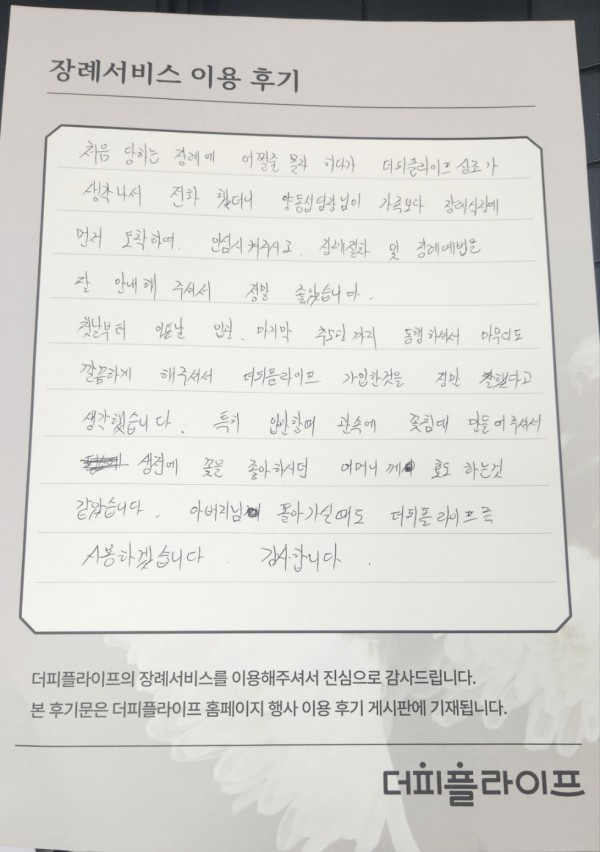 장례서비스 이용 후기
처음 당하는 장례에 어찌할줄 몰라 하다가 더피플라이프 상조가
생각나서 전화 했더니 양동섭팀장님이 가족보다 장례식장에
먼저 도착하여. 안심시켜주시고. 장례절차 및 장례예법을
잘 안내해 주셔서 정말 좋았습니다.
첫날부터 이튿날 입관. 마지막 까지 동행하셔서 마무리도
깔끔하게 해주셔서 더피플라이프 가입한것을 정말 잘했다고
생각했습니다. 특히 입관할때 관속에 꽃침대 만들어주셔서
생전에 꽃을 좋아하시던 어머니께 효도 하는것
같았습니다. 아버지님 돌아가실때도 더피플라이프를
사용하겠습니다. 감사합니다.
더피플라이프의 장례서비스를 이용해주셔서 진심으로 감사드립니다.
본 후기문은 더피플라이프 홈페이지 행사 이용 후기 게시판에 기재됩니다.
더피플라이프